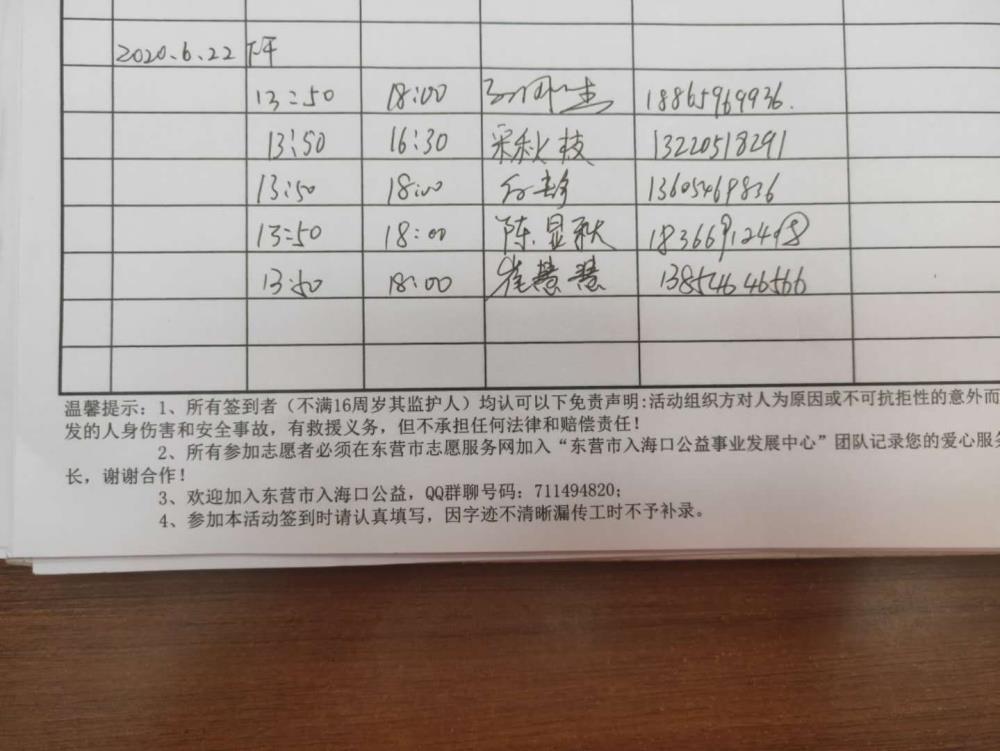 2020.6.22 下午
13:50 18:00 18865969936.
13:50 16:30 采秋枝 13220518291
13:50 18:00 13605469836
13:50 18:00 陈显秋 18366912498
13:50 18:00 崔慧慧 13854646566
温馨提示：1、所有签到者（不满16周岁其监护人）均认可以下免责声明:活动组织方对人为原因或不可抗拒性的意外而
发的人身伤害和安全事故，有救援义务，但不承担任何法律和赔偿责任！
2、所有参加志愿者必须在东营市志愿服务网加入“东营市入海口公益事业发展中心”团队记录您的爱心服务
长，谢谢合作！
3、欢迎加入东营市入海口公益，QQ群聊号码：711494820；
4、参加本活动签到时请认真填写，因字迹不清晰漏传工时不予补录。